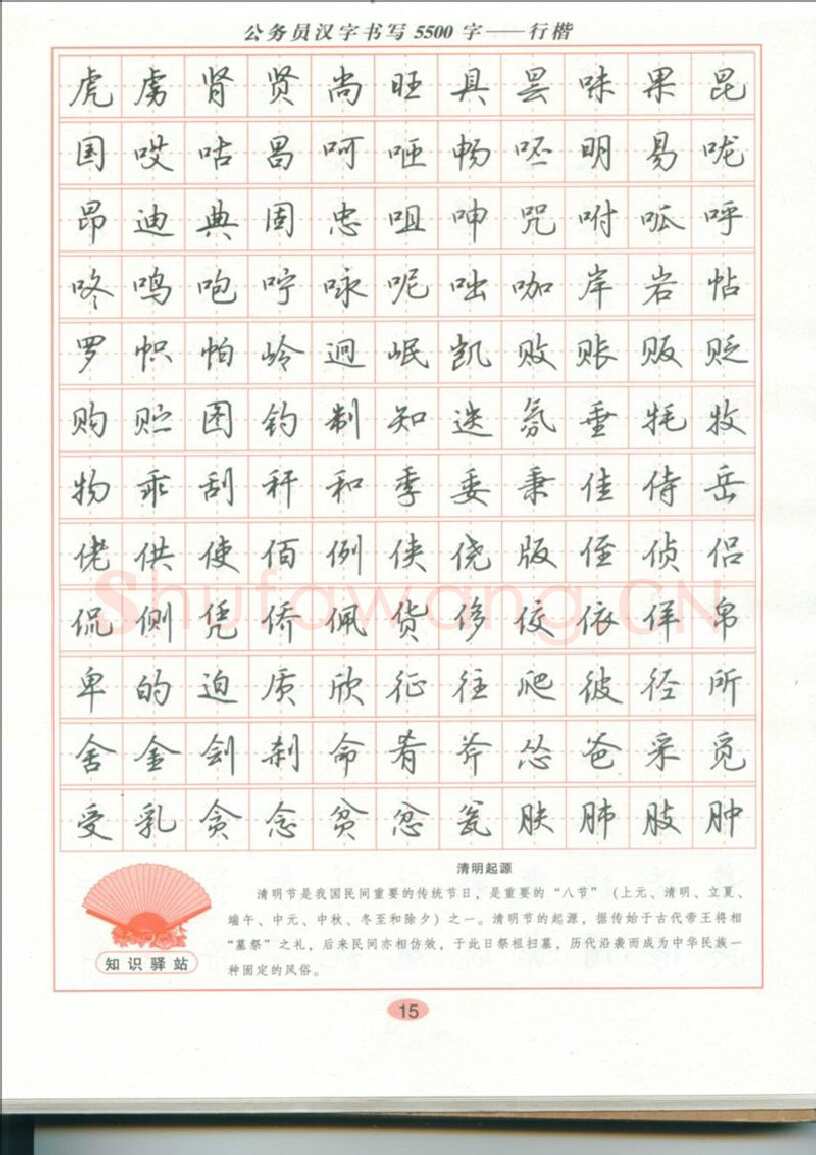 公务员汉字书写5500字——行楷
虎虏肾贤尚旺具昙味果昆
国哎咕昌呵咂畅呸明易咙
昂迪典固忠咀呻咒咐呱呼
咚鸣咆咛咏呢咄咖岸岩帖
罗帜帕岭迥岷凯败账贩贬
购贮图钓制知迭氛垂牦牧
物乖刮秆和季委秉佳侍岳
佬供使佰例侠侥版侄侦侣
侃侧凭侨佩货侈佼依佯帛
卑的迫质欣征往爬彼径所
舍金刽刹命肴斧怂爸采觅
受乳贪念贫忿瓮肤肺肢肿
Shufawang.CN
清明起源
清明节是我国民间重要的传统节日，是重要的“八节”（上元、清明、立夏、
端午、中元、中秋、冬至和除夕）之一。清明节的起源，据传始于古代帝王将相
“墓祭”之礼，后来民间亦相仿效，于此日祭祖扫墓，历代沿袭而成为中华民族一
种固定的风俗。
知识驿站
15